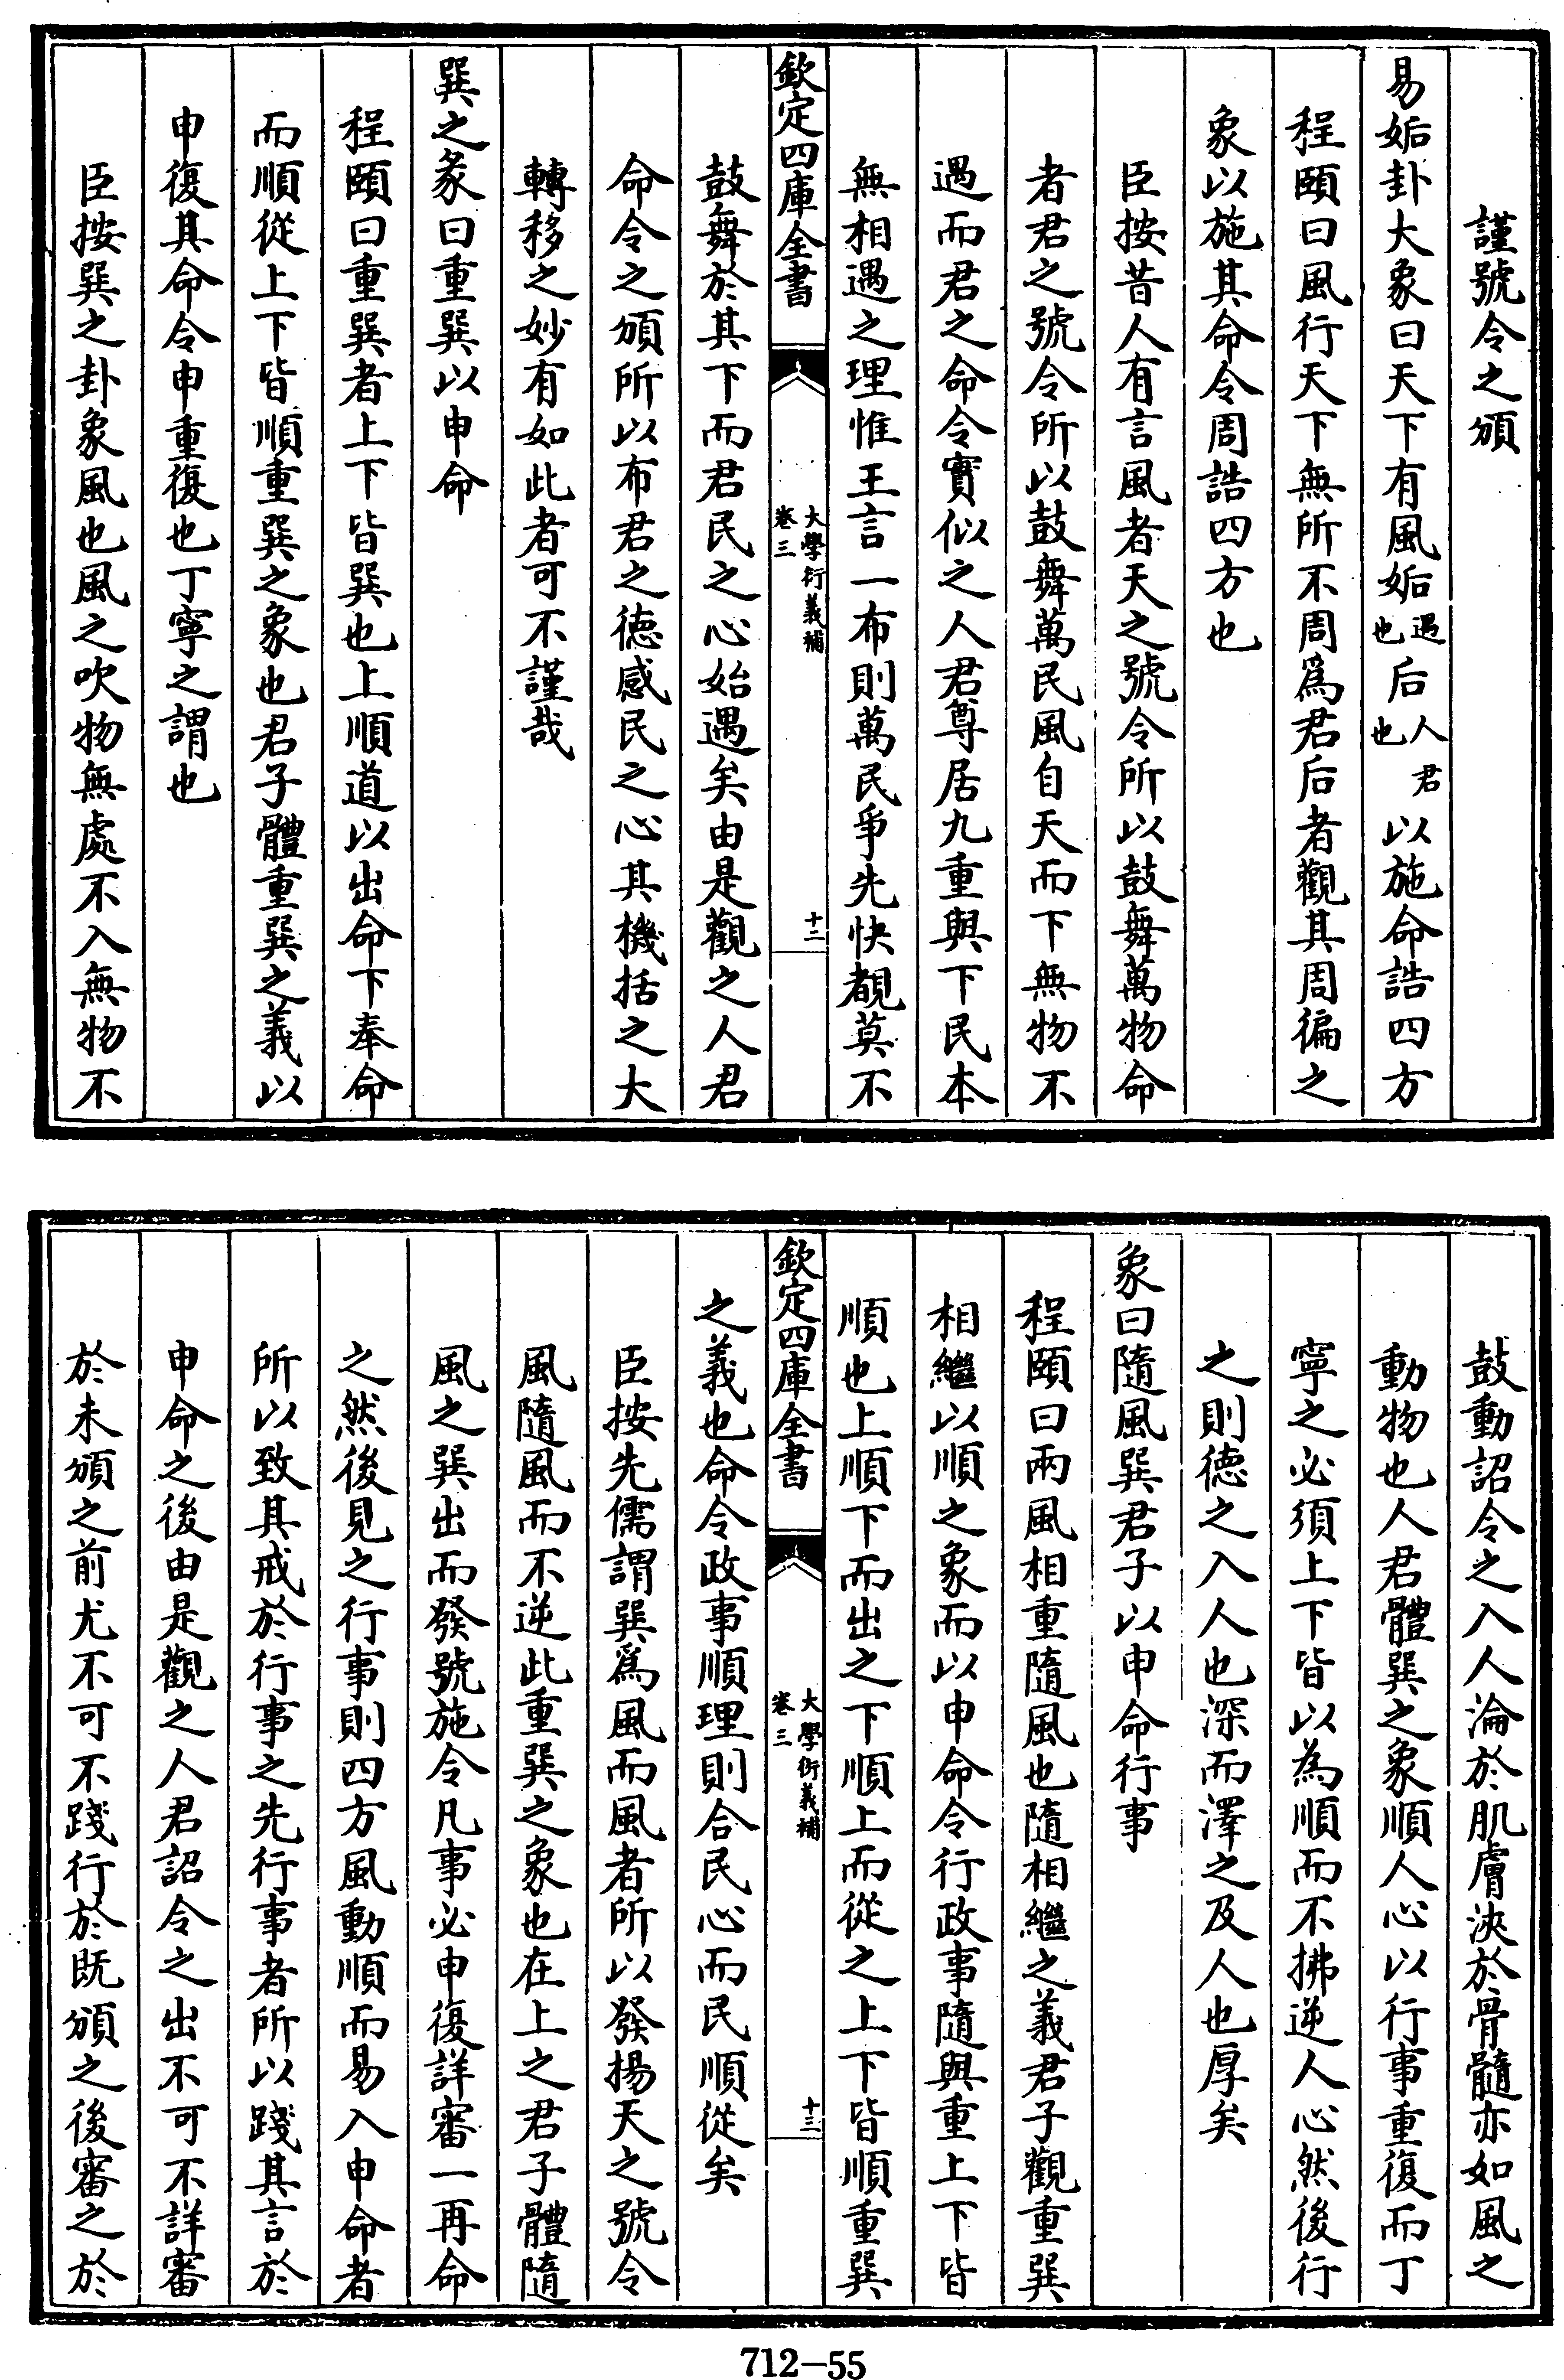 謹號令之頒
易姤卦大象曰天下有風姤遇也后人君也以施命誥四方
程頤曰風行天下無所不周爲君后者觀其周徧之
象以施其命令周誥四方也
臣按昔人有言風者天之號令所以鼓舞萬物命
者君之號令所以鼓舞萬民風自天而下無物不
遇而君之命令實似之人君尊居九重與下民本
無相遇之理惟王言一布則萬民爭先快覩莫不
欽定四庫全書
大學衍義補
卷三
十二
鼓舞於其下而君民之心始遇矣由是觀之人君
命令之頒所以布君之德感民之心其機括之大
轉移之妙有如此者可不謹哉
巽之彖曰重巽以申命
程頤曰重巽者上下皆巽也上順道以出命下奉命
而順從上下皆順重巽之象也君子體重巽之義以
申復其命令申重復也丁寧之謂也
臣按巽之卦象風也風之吹物無處不入無物不
鼓動詔令之入人淪於肌膚浹於骨髓亦如風之
動物也人君體巽之象順人心以行事重復而丁
寧之必須上下皆以為順而不拂逆人心然後行
之則德之入人也深而澤之及人也厚矣
象曰隨風巽君子以申命行事
程頤曰兩風相重隨風也隨相繼之義君子觀重巽
相繼以順之象而以申命令行政事隨與重上下皆
順也上順下而出之下順上而從之上下皆順重巽
欽定四庫全書
大學衍義補
卷三
十三
之義也命令政事順理則合民心而民順從矣
臣按先儒謂巽爲風而風者所以發揚天之號令
風隨風而不逆此重巽之象也在上之君子體隨
風之巽出而發號施令凡事必申復詳審一再命
之然後見之行事則四方風動順而易入申命者
所以致其戒於行事之先行事者所以踐其言於
申命之後由是觀之人君詔令之出不可不詳審
於未頒之前尤不可不踐行於既頒之後審之於
712-55